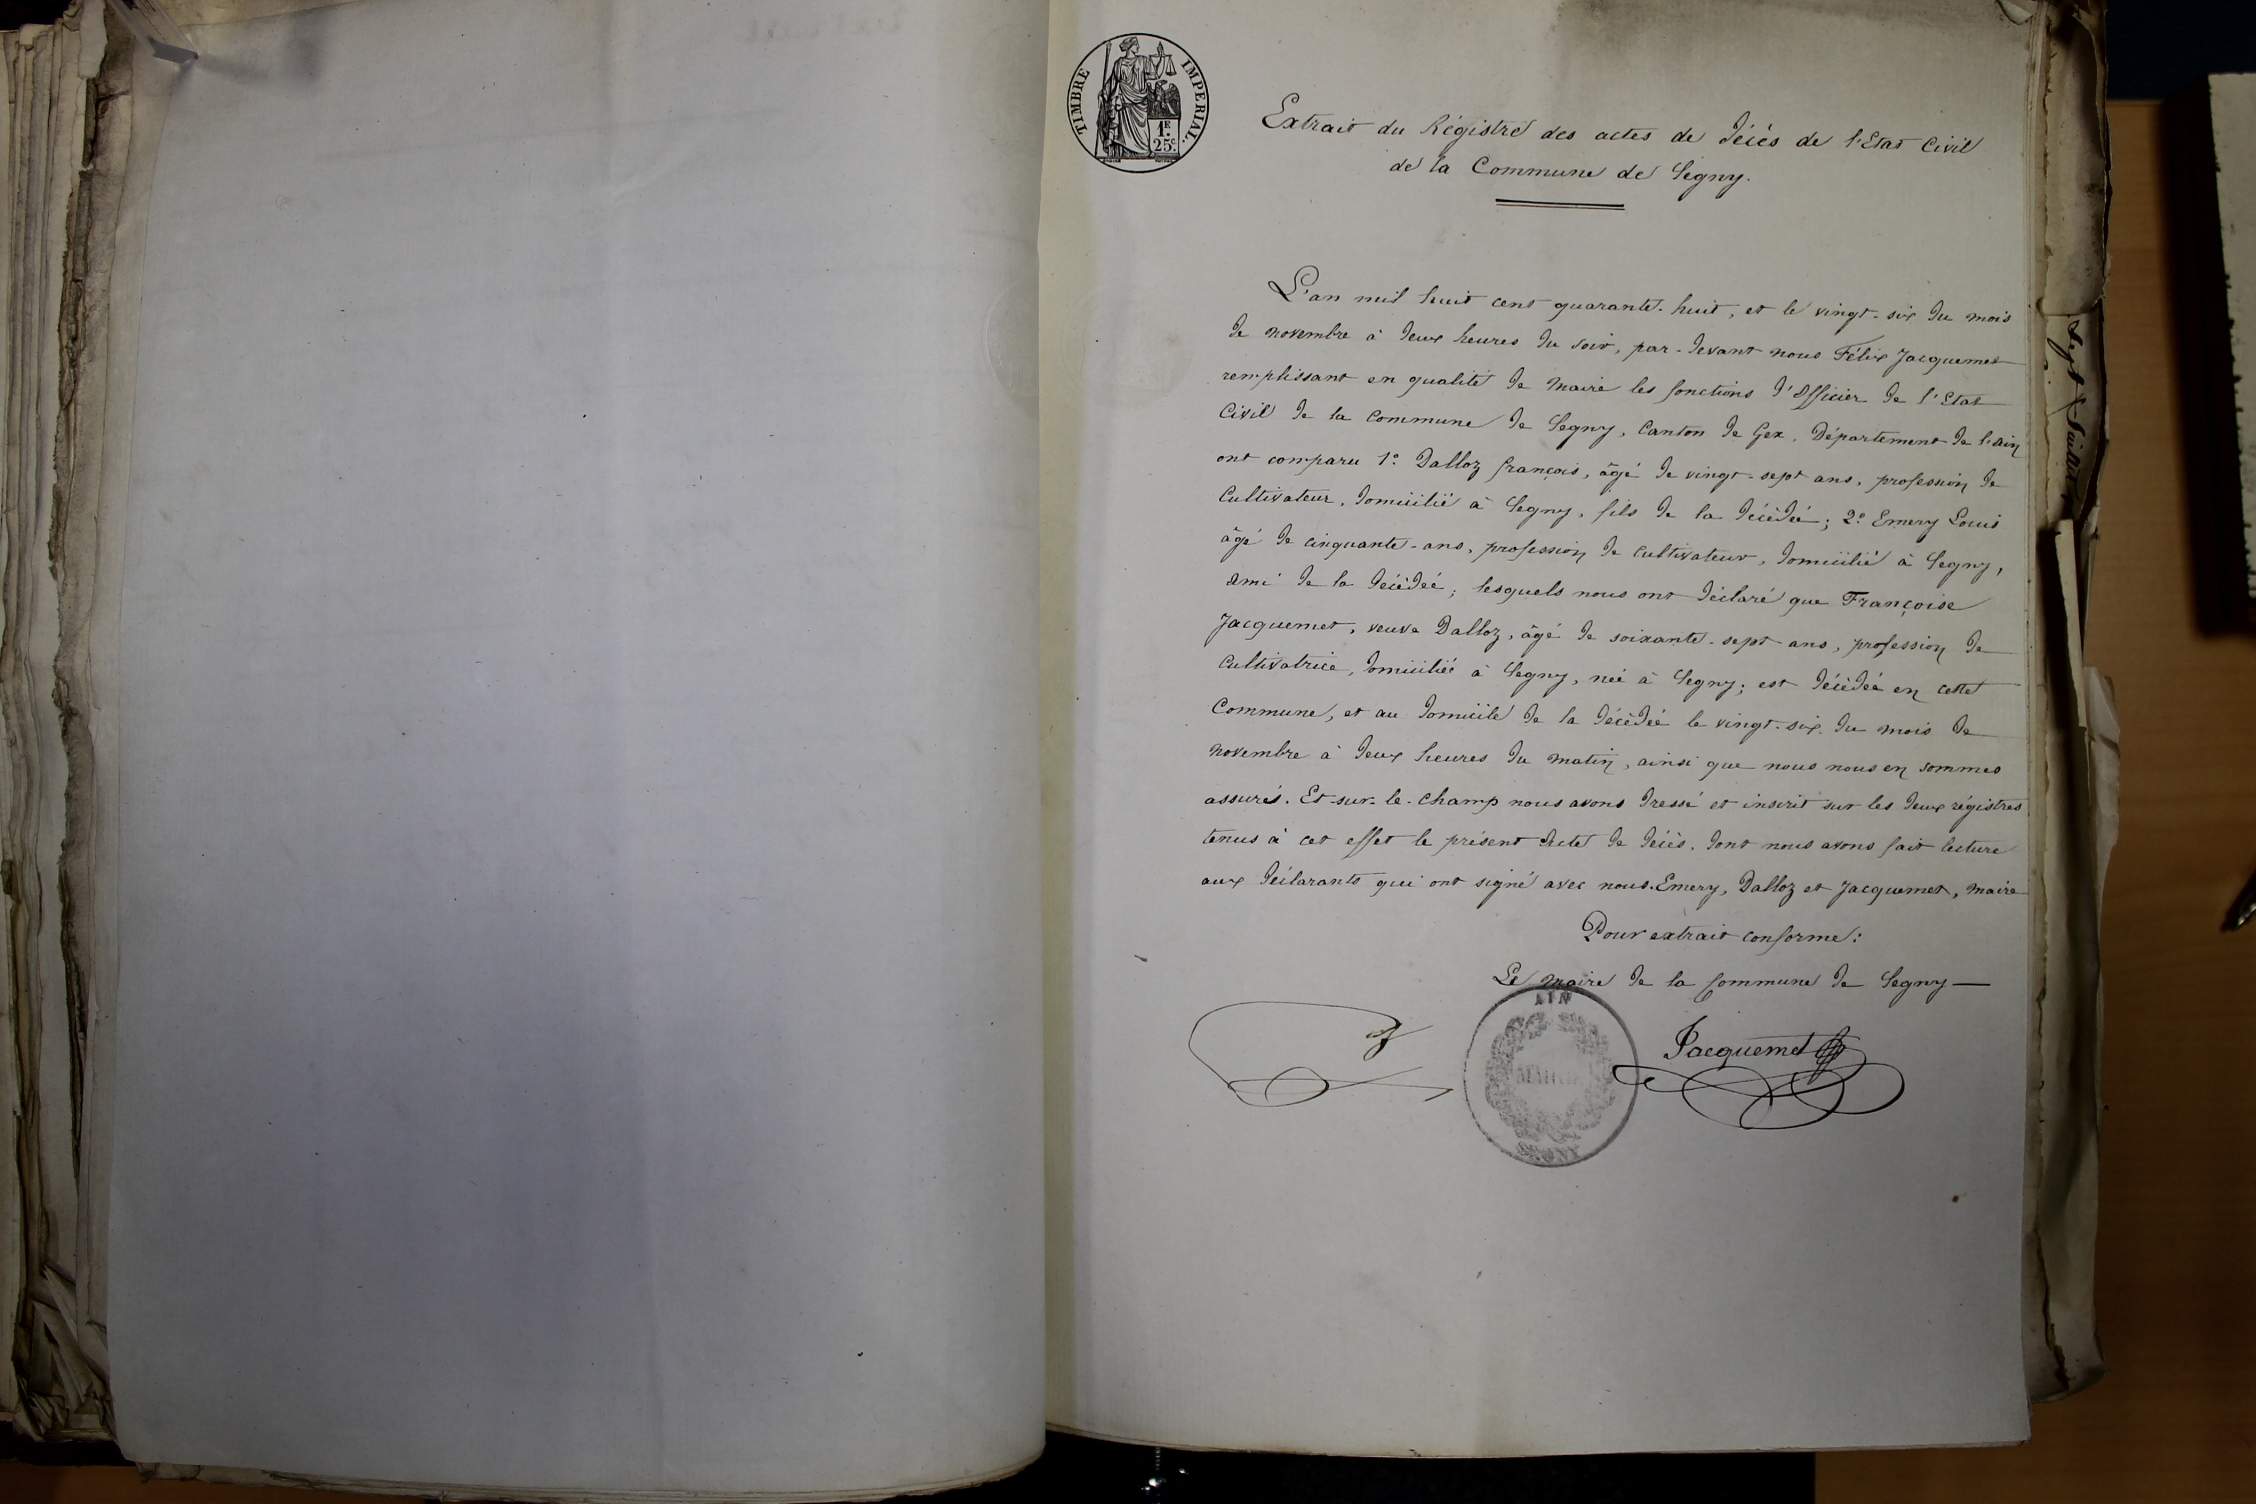 TIMBRE IMPERIAL.
1F. 25c.
Extrait du Régistre des actes de décès de l'Etat Civil
de la Commune de Segny.
L'an mil huit cent quarante-huit, et le vingt-six du mois
de novembre à deux heures du soir, par-devant nous Félix Jacquemet
remplissant en qualité de Maire les fonctions d'Officier de l'Etat
Civil de la Commune de Segny, Canton de Gex, Département de l'Ain
ont comparu 1º Dalloz françois, âgé de vingt-sept ans, profession de
Cultivateur, domicilié à Segny, fils de la décédée; 2º Emery Louis
âgé de cinquante-ans, profession de cultivateur, domicilié à Segny,
ami de la décédée; lesquels nous ont déclaré que Françoise
Jacquemet, veuve Dalloz, âgé de soixante-sept ans, profession de
Cultivatrice, domiciliée à Segny, née à Segny; est décédée en cette
Commune, et au domicile de la décédée le vingt-six du mois de
novembre à deux heures du matin, ainsi que nous nous en sommes
assurés. Et-sur-le-champ nous avons dressé et inscrit sur les deux régistres
tenus à cet effet le présent Acte de décès, dont nous avons fait lecture
aux déclarants qui ont signé avec nous. Emery, Dalloz et Jacquemet, maire
Pour extrait conforme:
Le Maire de la Commune de Segny —
AIN
MAIRIE
SEGNY
Jacquemet